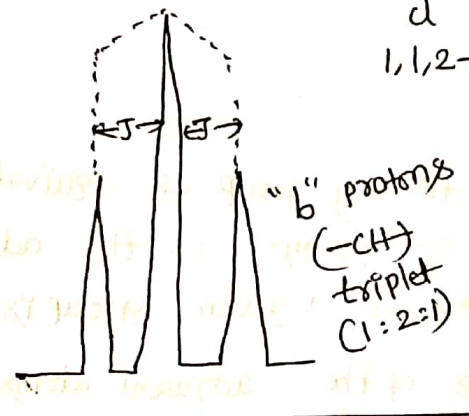 cl
1,1,2-
J
J
"b" protons
(-CH)
triplet
(1:2:1)